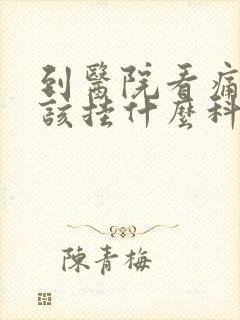 到醫院看痛
該掛什麼科
陳青梅